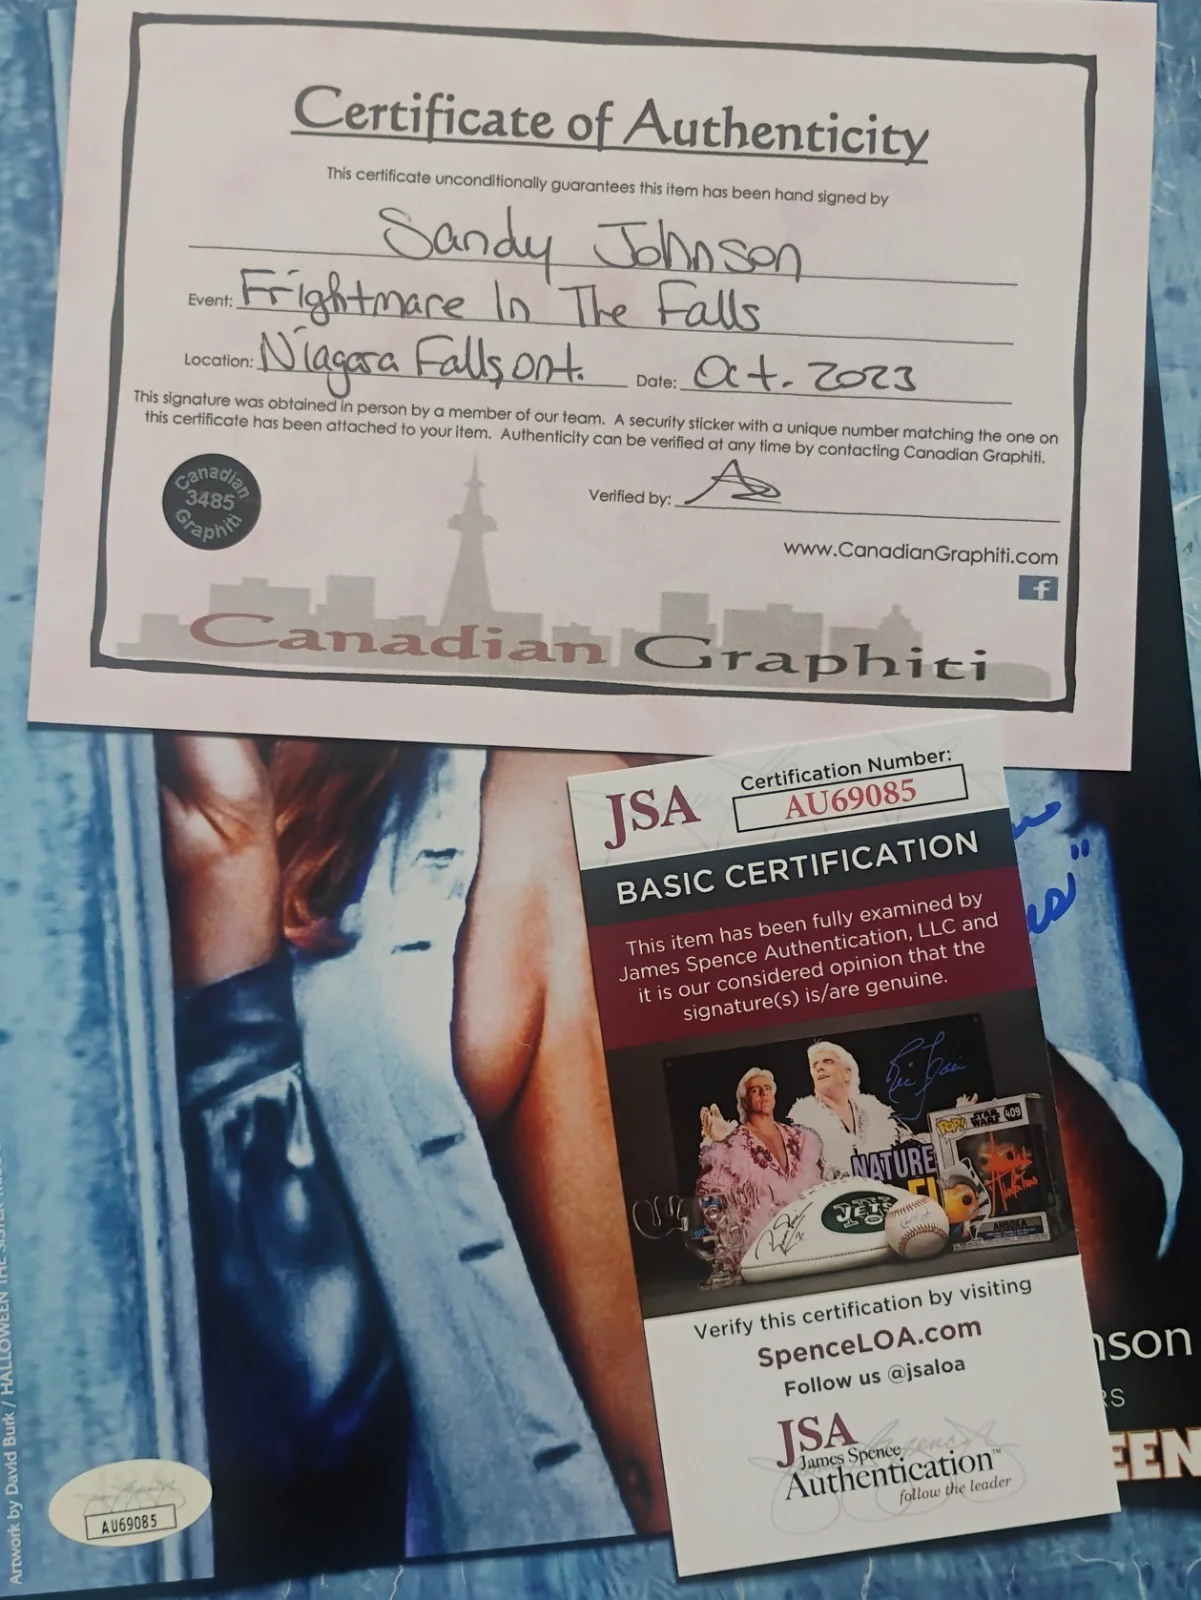 Certificate of Authenticity
This certificate unconditionally guarantees this item has been hand signed by
Sandy Johnson
Event: Frightmare In The Falls
Location: Niagara Falls, ont. Date: Oct. 2023
This signature was obtained in person by a member of our team. A security sticker with a unique number matching the one on
this certificate has been attached to your item. Authenticity can be verified at any time by contacting Canadian Graphiti.
Canadian
3485
Graphiti
Verified by:
www.CanadianGraphiti.com
f
Canadian Graphiti
JSA
Certification Number:
AU69085
BASIC CERTIFICATION
This item has been fully examined by
James Spence Authentication, LLC and
it is our considered opinion that the
signature(s) is/are genuine.
NATURE
POP!
STAR
WARS
409
JETS
AHSOKA
Verify this certification by visiting
SpenceLOA.com
Follow us @jsaloa
JSA
James Spence
Authentication™
follow the leader
nson
RS
EEN
AU69085
Artwork by David Burk / HALLOWEEN THE SISTER